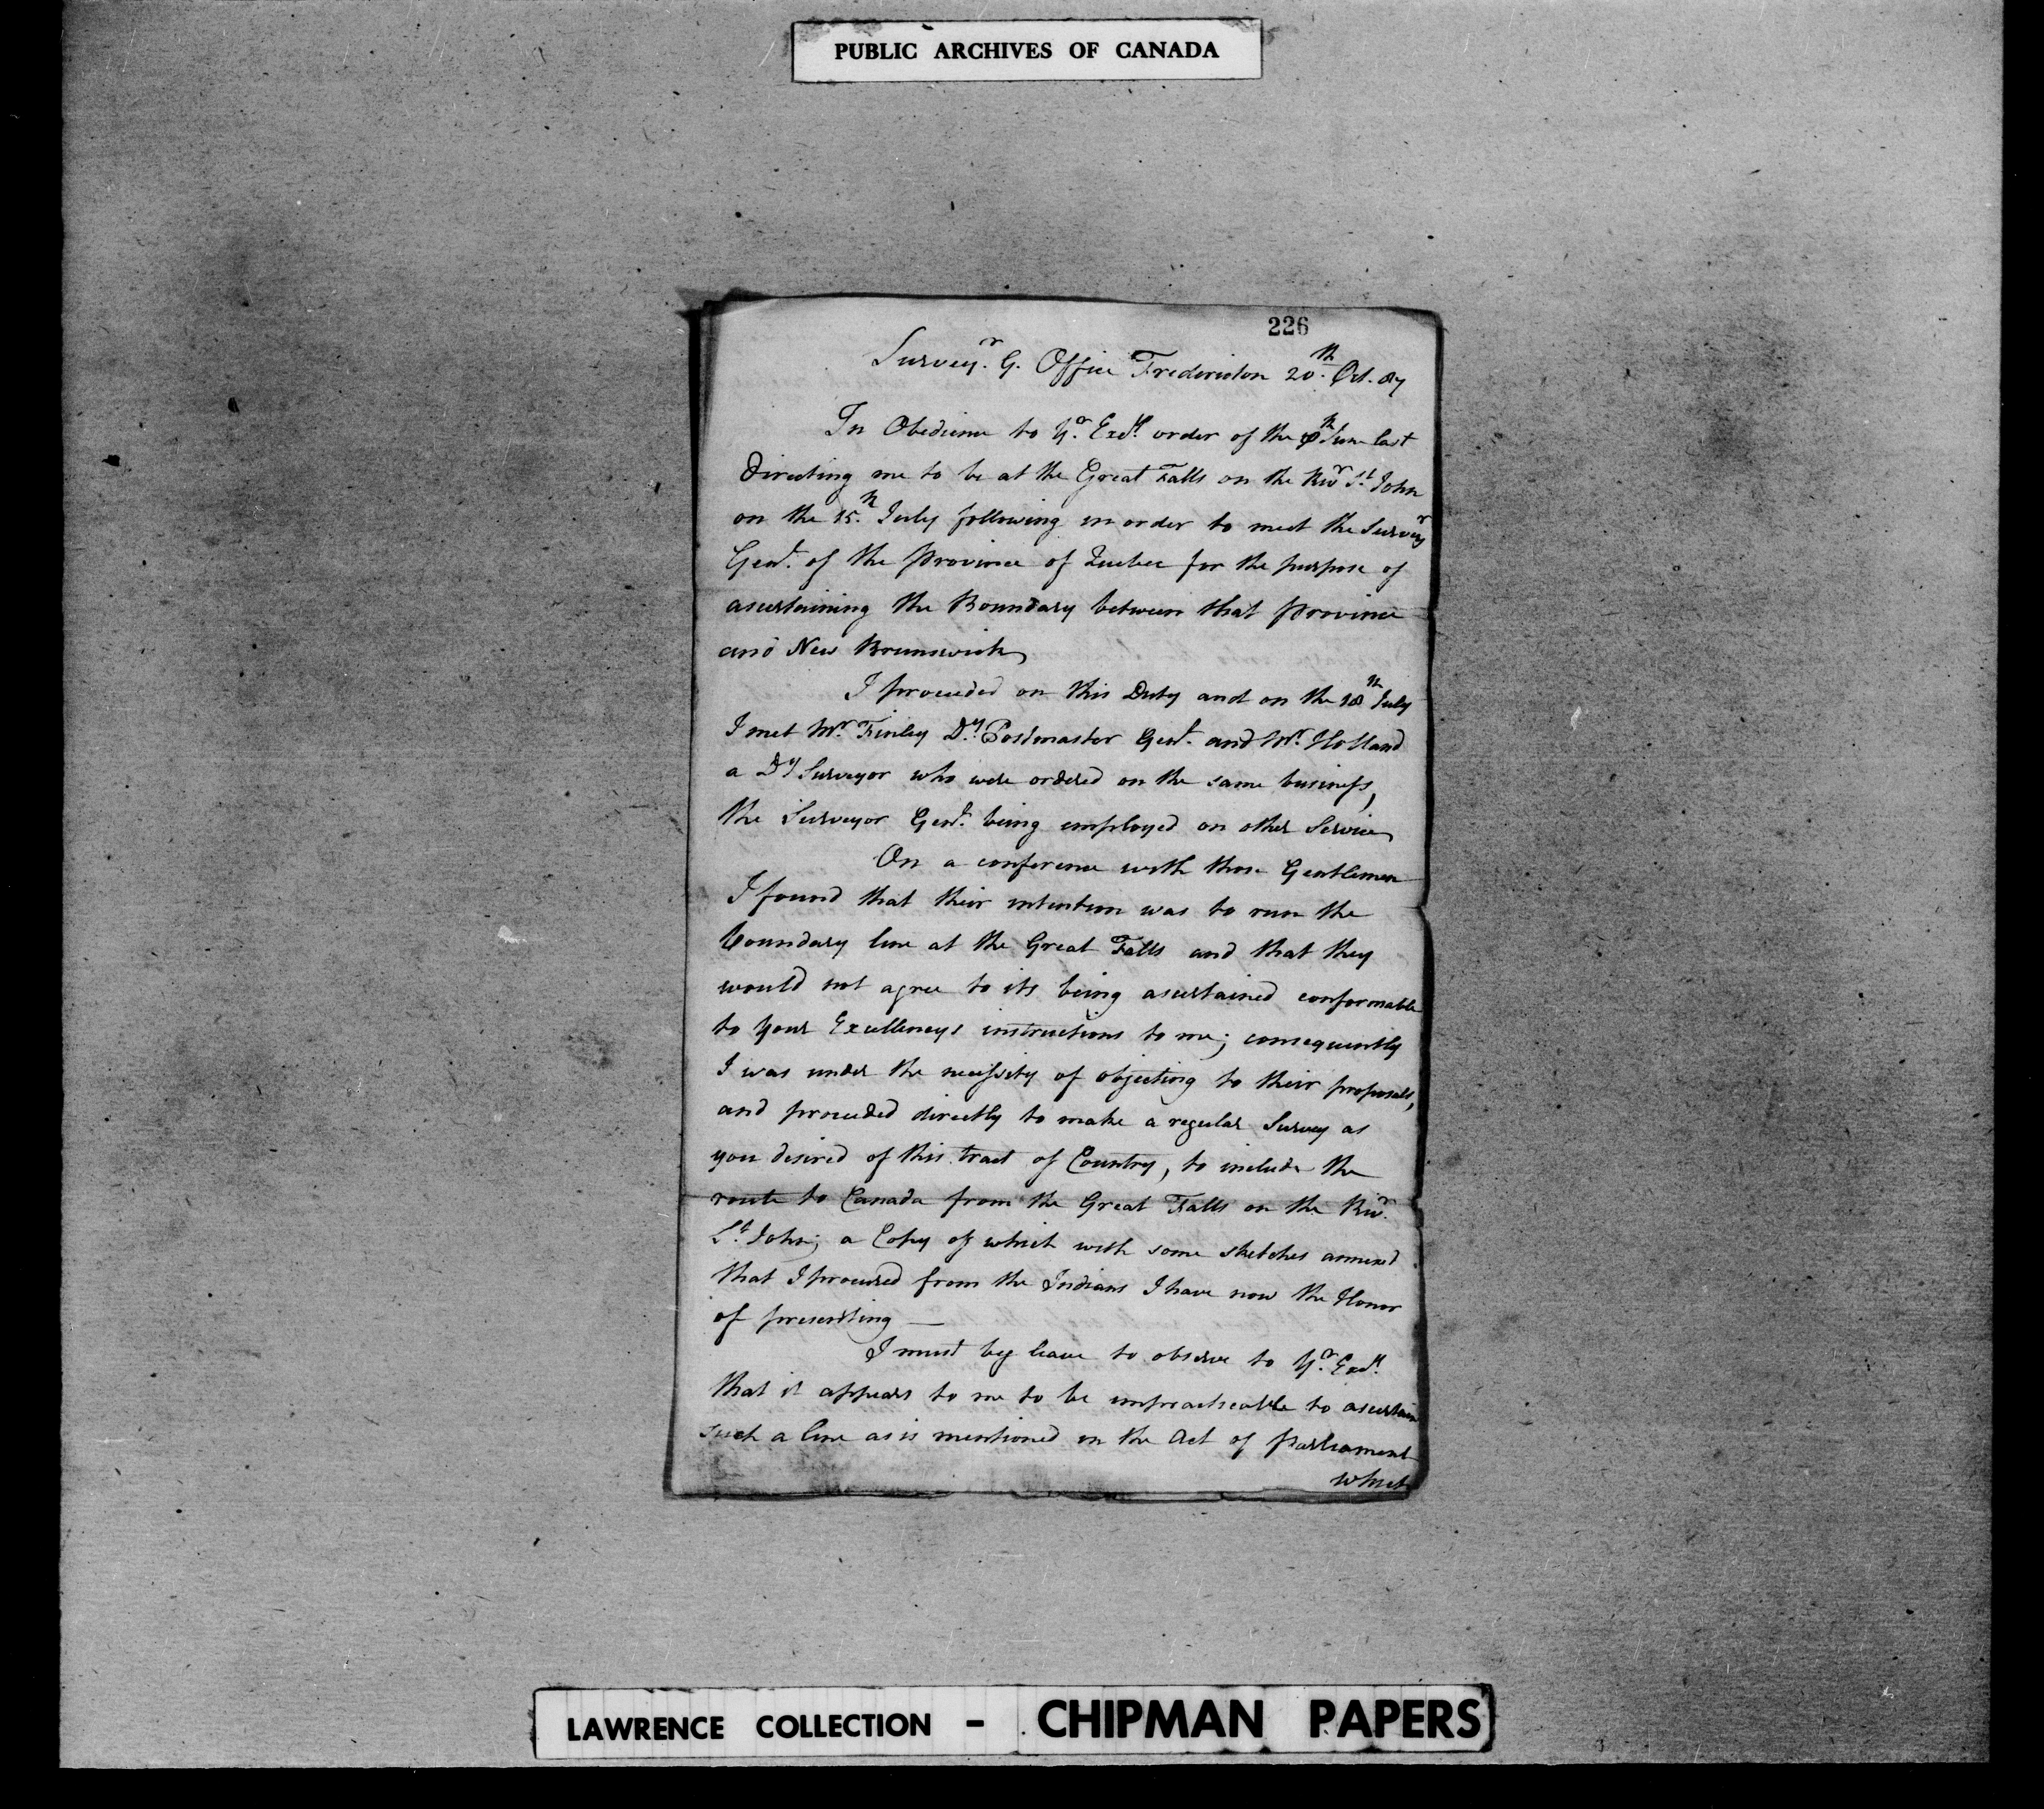 PUBLIC ARCHIVES OF CANADA
226
Survey.r G. Office Fredericton 20.th Oct. 87
In Obedience to Y.r Exc.y order of the June last
Directing me to be at the Great Falls on the Riv.r S.t John
on the 15.th July following in order to meet the Survey.r
Gen.l of the Province of Quebec for the purpose of
ascertaining the Boundary between that Province
and New Brunswick
I proceeded on this Duty and on the 18th July
I met Mr. Finley D.y Postmaster Gen.l and Mr. Holland
a D.y Surveyor who were ordered on the same business,
the Surveyor Gen.l being employed on other Service
On a conference with those Gentlemen
I found that their intention was to run the
boundary line at the Great Falls and that they
would not agree to its being ascertained conformable
to your Excellencys instructions to me; consequently
I was under the necessity of objecting to their proposals,
and proceeded directly to make a regular Survey as
you desired of this tract of Country, to include the
route to Canada from the Great Falls on the Riv.r
S.t John; a Copy of which with some sketches annexed
that I procured from the Indians I have now the Honor
of presenting —
I must beg leave to observe to Y.r Exc.y
that it appears to me to be impracticable to ascertain
such a line as is mentioned in the Act of Parliament
which
LAWRENCE COLLECTION - CHIPMAN PAPERS